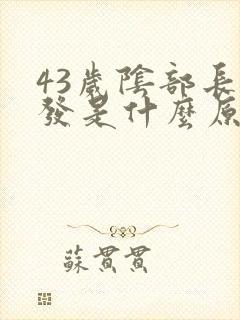 43歲陰部長
發是什麼原
蘇貫貫